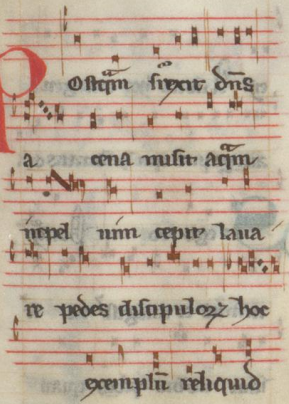 Postq̄m surexit dn̄s
a cena misit aq̄m
in pel uim cepit laua
re pedes discipuloꝝ hoc
exemplū reliquid